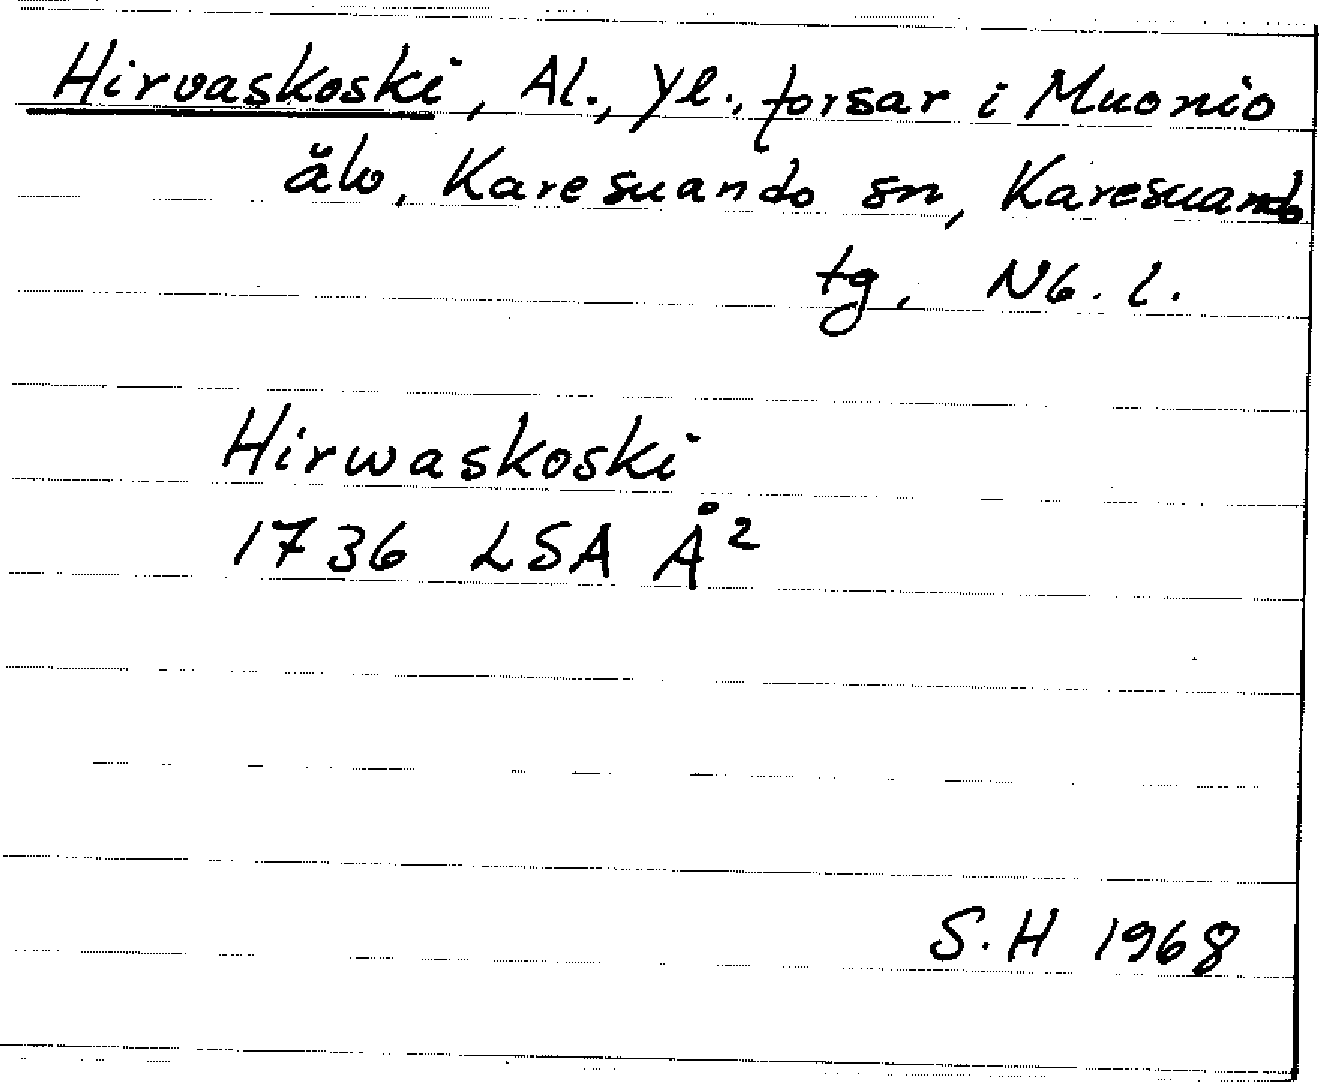 Hirvaskoski, Al., Yl., forsar i Muonio
älv, Karesuando sn, Karesuando
tg, Nb. l.
Hirwaskoski
1736 LSA Å²
S.H 1968